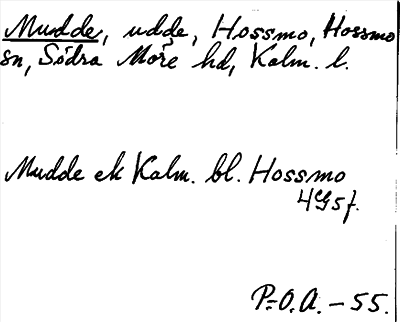 Mudde, udde, Hossmo, Hossmo
sn, Södra Möre hd, Kalm. l.
Mudde ek Kalm. bl. Hossmo
4G5f.
P.-O.A. - 55.